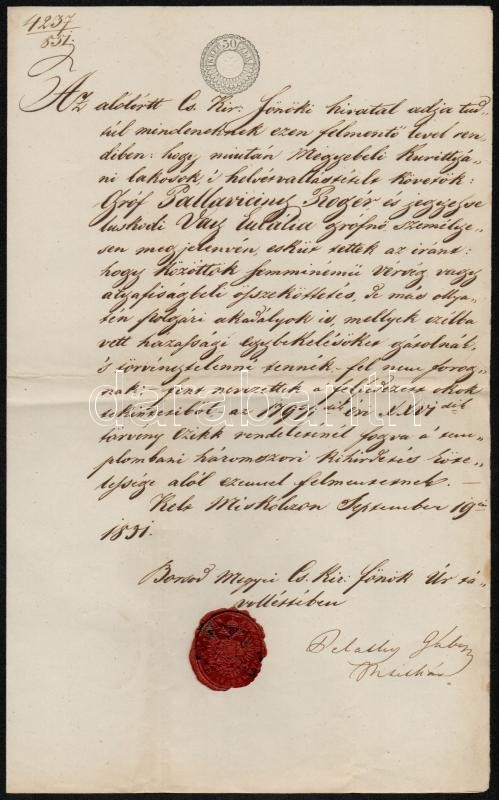 4237
851.
Az alólirtt Cs. Kir. főnöki hivatal adja tud-
túl mindeneknek ezen felmentő level ren-
diben: hogy miután Megyebeli
lakosok, s helv: vallástételt követők:
Gróf Pallavicini Roger és jegyese
luskodi Vay Eulália grófnő személye-
sen megjelenvén, esküt tettek az iránt:
hogy közöttük semminémű vérség vagy
atyafiságbeli összeköttetés, de más ollya-
tén polgári akadályok is, mellyek czélba
vett házassági egybekelésöket gátolnák
s törvénytelenné tennék – fel nem forog-
nak – fent nevezettek a
az 1791 XXVI dik
törvény Czikk rendeleténél fogva a tem-
plombani háromszori kihirdetés köte-
lessége alól ezennel felmentetnek. –
Kelt Miskolczon September 19én
1851.
Borsod Megyei Cs. Kir. Főnök Úr tá-
vollétében
darabanth.com